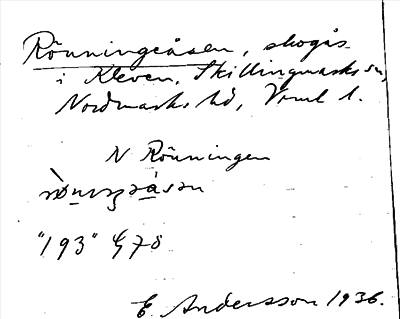 Rönningeåsen, skogås
i Kleven, Skillingmarks sn,
Nordmarks hd, Vrml l.
N Rönningen
"193" G78
E. Andersson 1936.